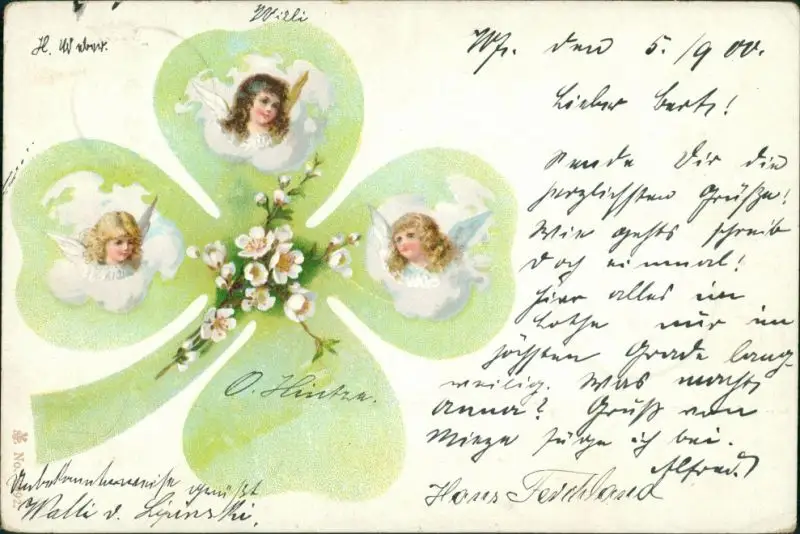 Willi
H. Weber.
den 5./9 00.
Lieber Bert!
Sende Dir die
herzlichsten Grüße!
Wie gehts schreib
doch einmal!
Hier alles im
Lothe nur im
höchsten Grade lang-
weilig. Was macht
Anna? Gruß von
Mieze füge ich bei.
Alfred
Hans
O. Hintze.
Unbekannterweise grüßt
Walli v. Lipinski.
No.